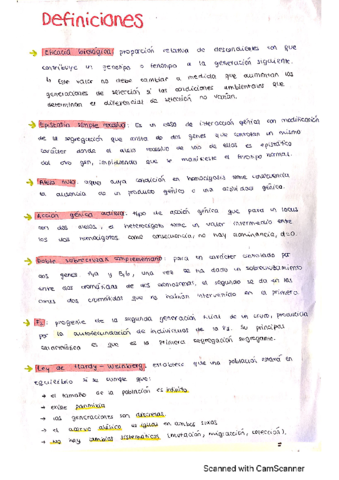 Definiciones
→ Eficacia biológica: proporción relativa de descendientes con que
contribuye un genotipo o fenotipo a la generación siguiente.
↳ Este valor no debe cambiar a medida que aumentan las
generaciones de selección si las condiciones ambientales que
determinan el diferencial de selección no varían.
→ Epistasia simple recesiva: Es un caso de interacción génica con modificación
de la segregación que actúa de dos genes que controlan un mismo
carácter donde el alelo recesivo de uno de ellos es epistático
del otro gen, impidiendo que se manifieste el fenotipo normal.
→ Alelo nulo: aquel cuya condición en homocigosis tiene como consecuencia
la ausencia de un producto génico o una actividad génica.
→ Acción génica aditiva: tipo de acción génica que para un locus
con dos alelos, el heterocigoto tiene un valor intermedio entre
los dos homocigotos, como consecuencia, no hay dominancia, d=0.
→ Doble sobrecruzam. complementario: para un carácter controlado por
dos genes A/a y B/b, una vez se ha dado un sobrecruzamiento
entre dos cromátidas de dos homólogos, el segundo se da en las
otras dos cromátidas que no habían intervenido en el primero.
→ F2: progenie de la segunda generación filial de un cruce, producida
por la autofecundación de individuos de la F1. Su principal
característica es que es la primera generación segregante.
→ Ley de Hardy-Weinberg: establece que una población estará en
equilibrio si se cumple que:
→ el tamaño de la población es infinito
→ existe panmixia
→ las generaciones son discretas.
→ el acervo alélico es igual en ambos sexos
→ No hay cambios sistemáticos (mutación, migración, selección).
Scanned with CamScanner